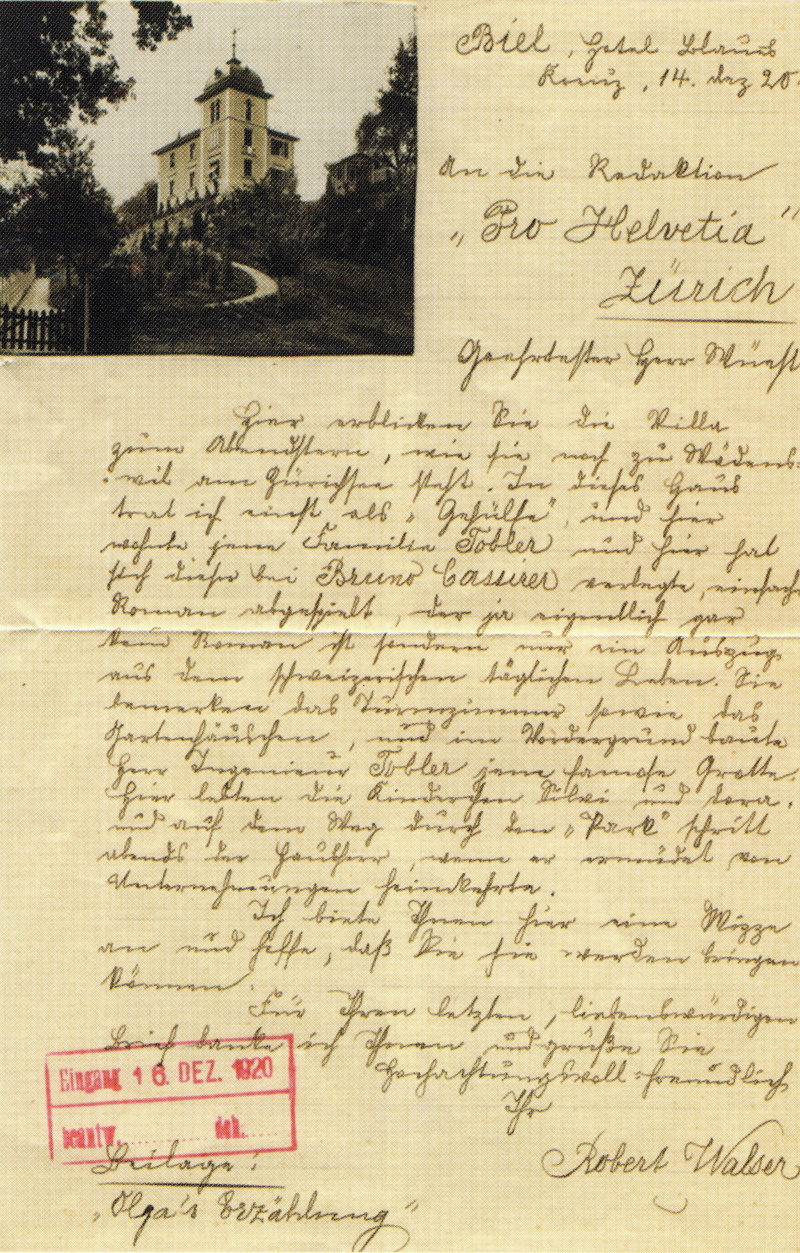 Biel, Hotel blaues
Kreuz, 14. Dez 20.
An die Redaktion
„Pro Helvetia"
Zürich
Geehrtester Herr Wüest
Hier erblicken Sie die Villa
zum Abendstern, wie sie noch zu Wädens-
wil am Zürichsee steht. In dieses Haus
trat ich einst als „Gehülfe", und hier
wohnte jene Familie Tobler und hier hat
sich dieser bei Bruno Cassirer verlegte, einfache
Roman abgespielt, der ja eigentlich gar
kein Roman ist sondern nur ein Auszug
aus dem schweizerischen täglichen Leben. Sie
bemerken das Turmzimmer sowie das
Gartenhäuschen, und im Vordergrund baute
Herr Ingenieur Tobler jene famose Grotte.
Hier lebten die Kinderchen Silvi und Dora.
und auf dem Weg durch den „Park" schritt
abends der Hausherr, wenn er ermüdet von
Unternehmungen heimkehrte.
Ich biete Ihnen hier eine Skizze
an und hoffe, daß Sie sie werden bringen
können.
Für Ihren letzten, liebenswürdigen
Brief danke ich Ihnen und grüße Sie
hochachtungsvoll freundlich
Ihr
Robert Walser
Eingang 16. DEZ. 1920
beantw. dch.
Beilage:
„Olga's Erzählung"